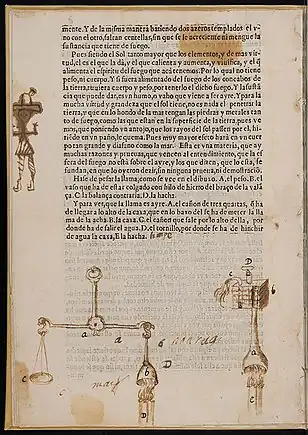 mente. Y de la misma manera batiendo dos azeros templados el v-
no con el otro, saltan centellas, sin que se le acreciente ni mengue la
sustancia que tiene de fuego.
Pues siendo el Sol tanto mayor que los elementos, y de mas vir-
tud, el es el que la dá, y el que calienta y aumenta, viuifica, y el q̃
alimenta el espiritu del fuego que acá tenemos. Por lo qual no tiene
peso, ni cuerpo. Y si fuera alimentado del fuego de los concabos de
la tierra, tuuiera cuerpo y peso, por tenerlo el dicho fuego. Y la sustã
cia que puede dar, es vn humo, y vaho que viene a ser ayre. Y para la
mucha virtud y grandeza que el sol tiene, no es nada el penetrar la
tierra, y que en lo hondo de la mar tengan las piedras y metales tan-
to de fuego, como las que estan en la superficie de la tierra: pues ve-
mos, que poniendo vn antojo, que los rayos del sol passen por el, hi-
riẽdo de vn paño, le quema. Pues muy mayor efeto hará en vn cuer
po tan grande y diafano como la mar. Esta es vna materia, que ay
muchas razones y prueuas, que vencen al entendimiento, que la es
fera del fuego no está sobre el ayre, y los que dizen, que lo está, se
fundan, en que lo oyeron dezir, sin ninguna prueua, ni demostraciõ.
Hase de pesar la llama, como se vee en el dibuxo. A. el peso. B. el
vaso que ha de estar colgado con hilo de hierro del braço de la valã-
ça. C. la balança contraria, D. la hacha.
Y para ver, que la llama es ayre. A. el cañon de tres quartas, q̃ ha
de llegar a lo alto de la caxa, que en lo baxo del se ha de meter la lla
ma de la acha. B. la caxa. C. el cañon que sale por lo alto della, por
donde ha de salir el agua. D. el tornillo, por donde se ha de hinchir
de agua la caxa, E. la hacha.
D
c
b
a
a
a
b
c
D
E